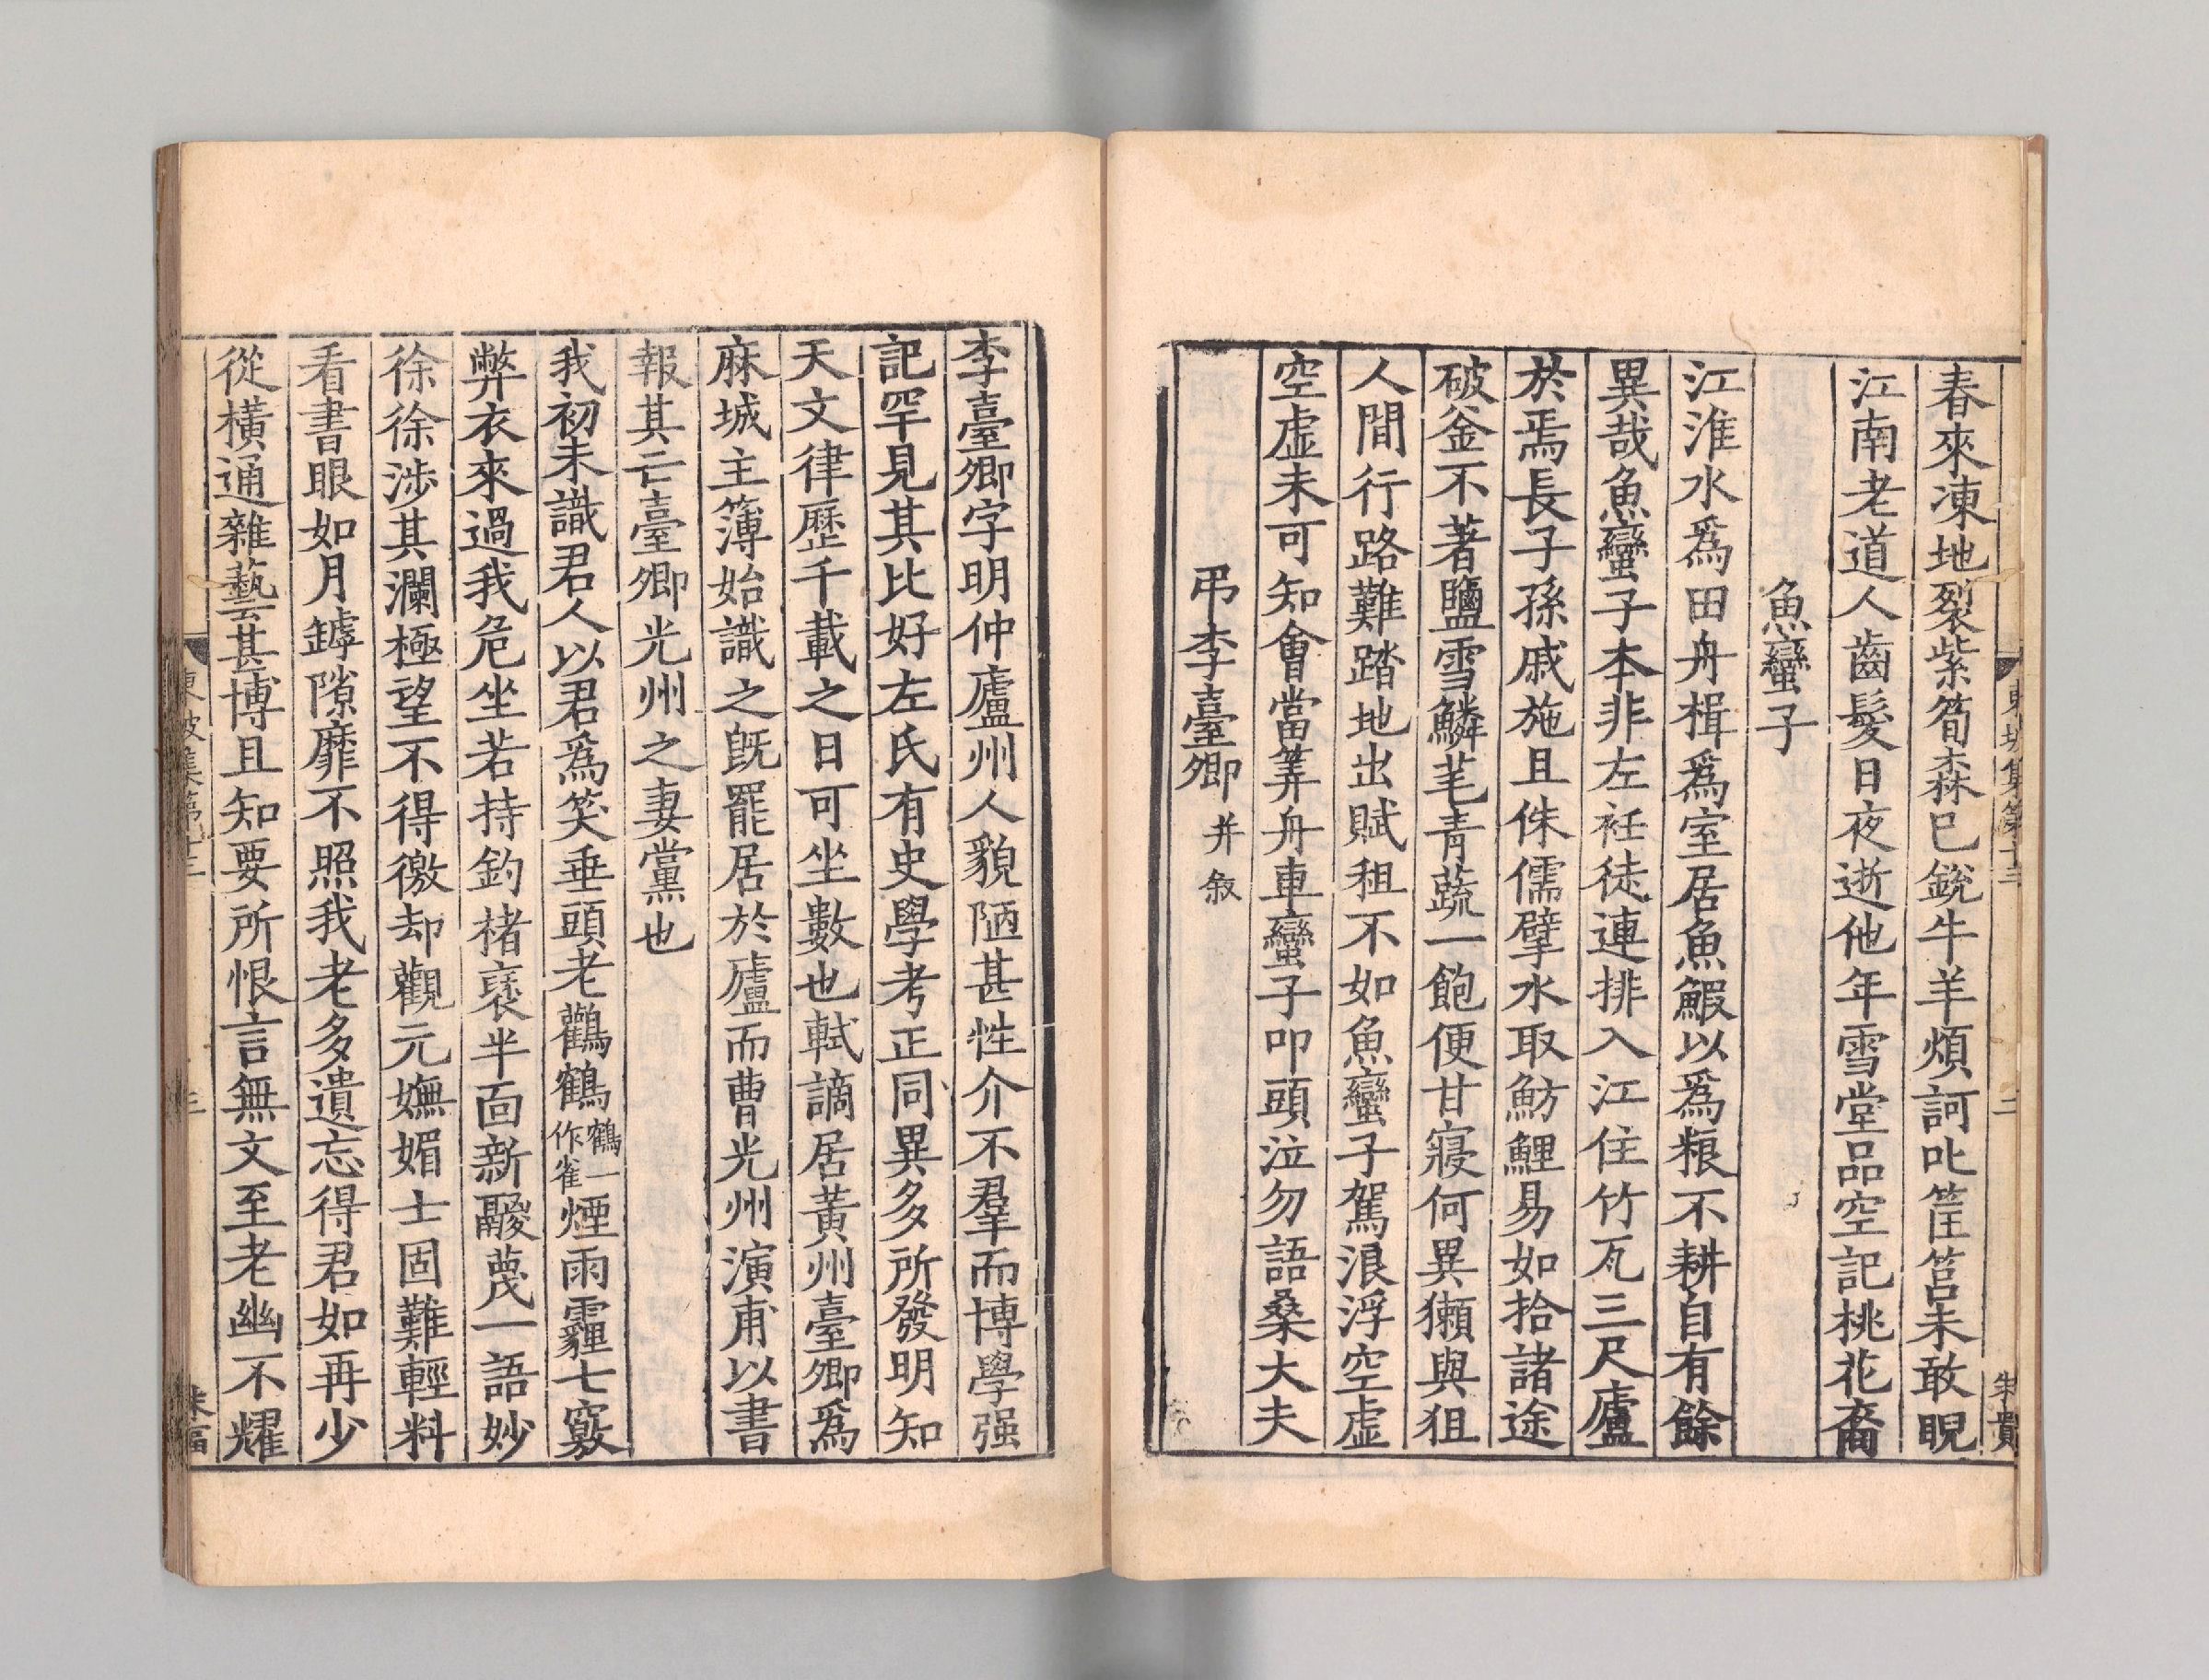 春來凍地裂紫筍森已銳牛羊煩訶叱筐筥未敢睨
江南老道人齒髮日夜逝他年雪堂品空記桃花裔
魚蠻子
江淮水爲田舟楫爲室居魚鰕以爲粮不耕自有餘
異哉魚蠻子本非左衽徒連排入江住竹瓦三尺廬
於焉長子孫戚施且侏儒擘水取魴鯉易如拾諸途
破釜不著鹽雪鱗芼青蔬一飽便甘寢何異獺與狙
人間行路難踏地出賦租不如魚蠻子駕浪浮空虛
空虛未可知會當筭舟車蠻子叩頭泣勿語桑大夫
弔李臺卿并敘
李臺卿字明仲廬州人貌陋甚性介不羣而博學强
記罕見其比好左氏有史學考正同異多所發明知
天文律歷千載之日可坐數也軾謫居黃州臺卿爲
麻城主簿始識之旣罷居於廬而曹光州演甫以書
報其亡臺卿光州之妻黨也
我初未識君人以君爲笑垂頭老鸛鶴鶴一作雀煙雨霾七竅
弊衣來過我危坐若持釣褚裒半面新鬷蔑一語妙
徐徐涉其瀾極望不得徼却觀元嫵媚士固難輕料
看書眼如月罅隙靡不照我老多遺忘得君如再少
從橫通雜藝甚博且知要所恨言無文至老幽不耀
東坡集第十三
二
朱貴
東坡集第十三
三
朱富